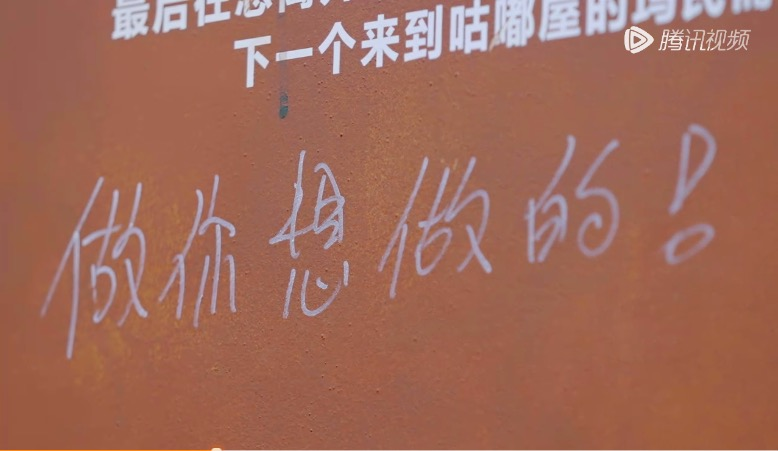 最后在您离开
下一个来到咕嘟屋的玛氏
腾讯视频
做你想做的！